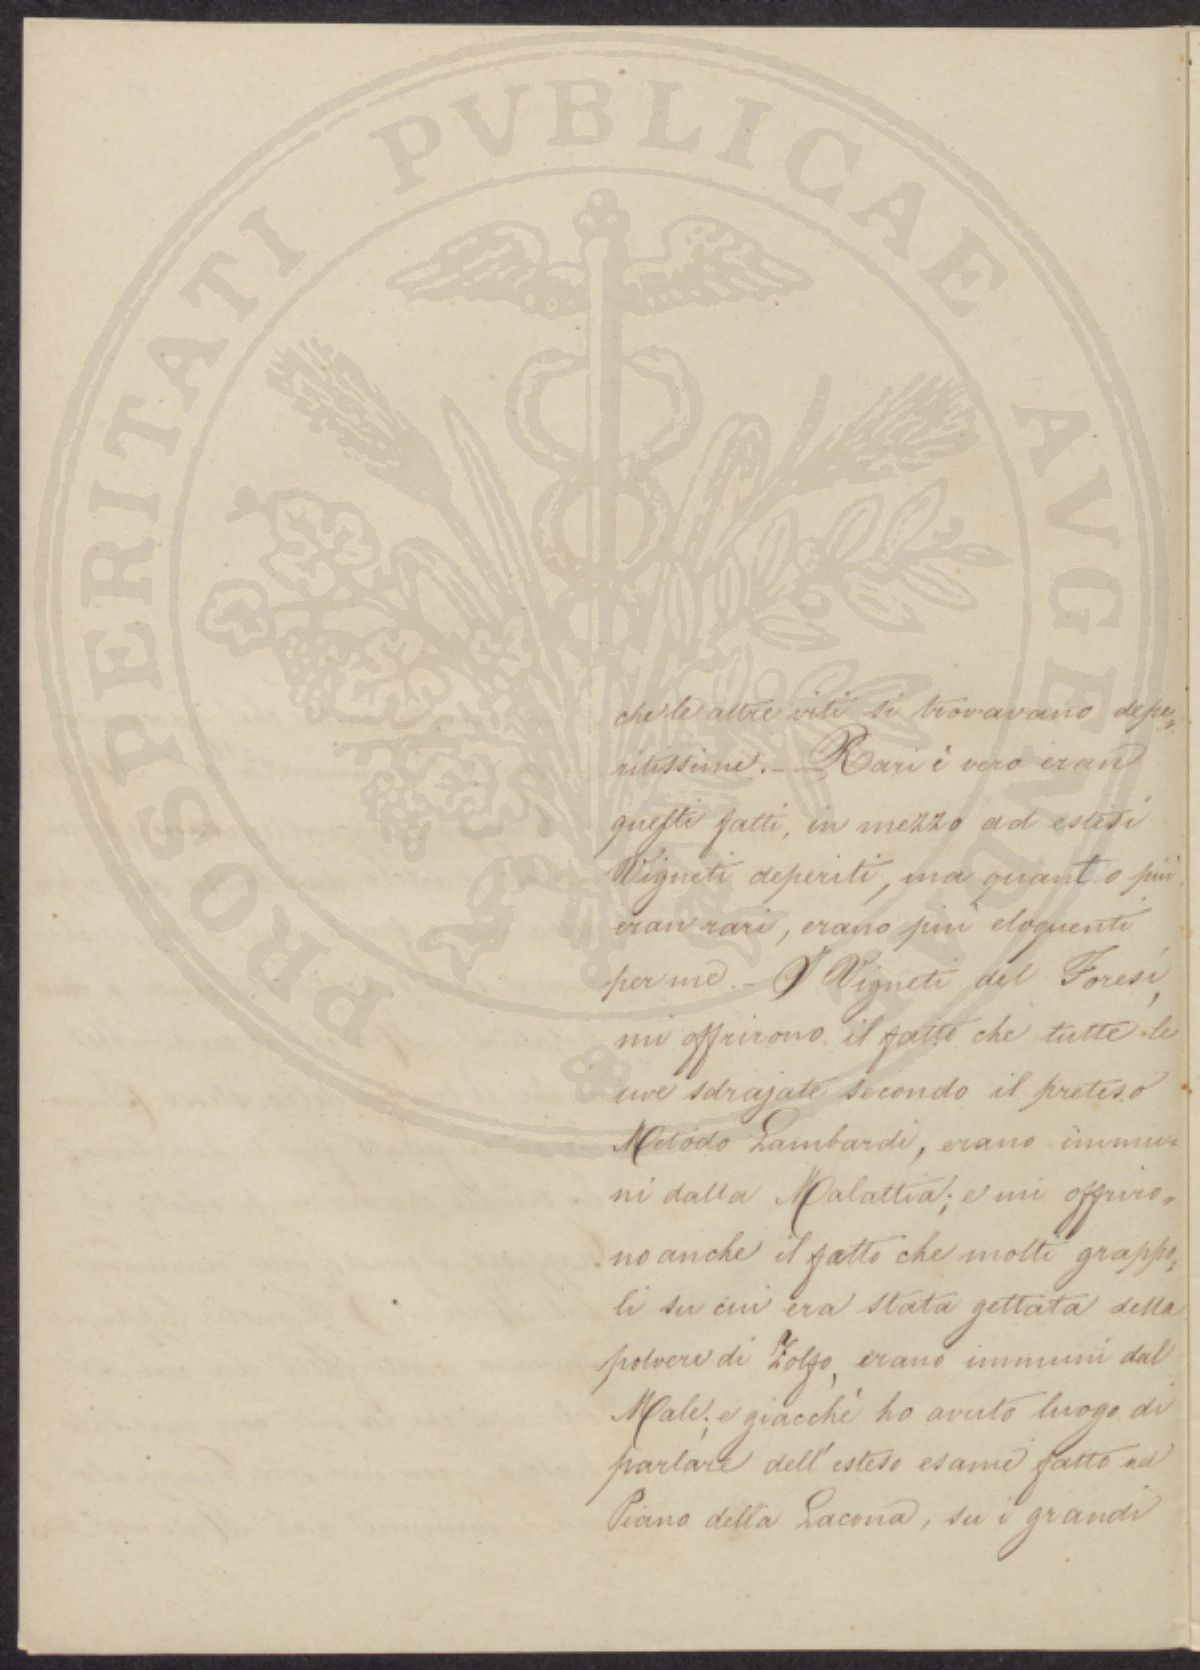 PROSPERITATI PVBLICAE AVGENDAE
che le altre viti si trovavano depe=
ritissime. - Rari è vero eran
questi fatti, in mezzo ad estesi
Vigneti deperiti, ma quanto più
eran rari, erano più eloquenti
per me. - I Vigneti del Foresi,
mi offrirono il fatto che tutte le
uve sdrajate secondo il preteso
Metodo Lambardi, erano immu=
ni dalla Malattia; e mi offriro=
no anche il fatto che molti grappo=
li su cui era stata gettata della
polvere di Zolfo, erano immuni dal
Male; e giacchè ho avuto luogo di
parlare dell'esteso esame fatto nel
Piano della Lacona, su i grandi